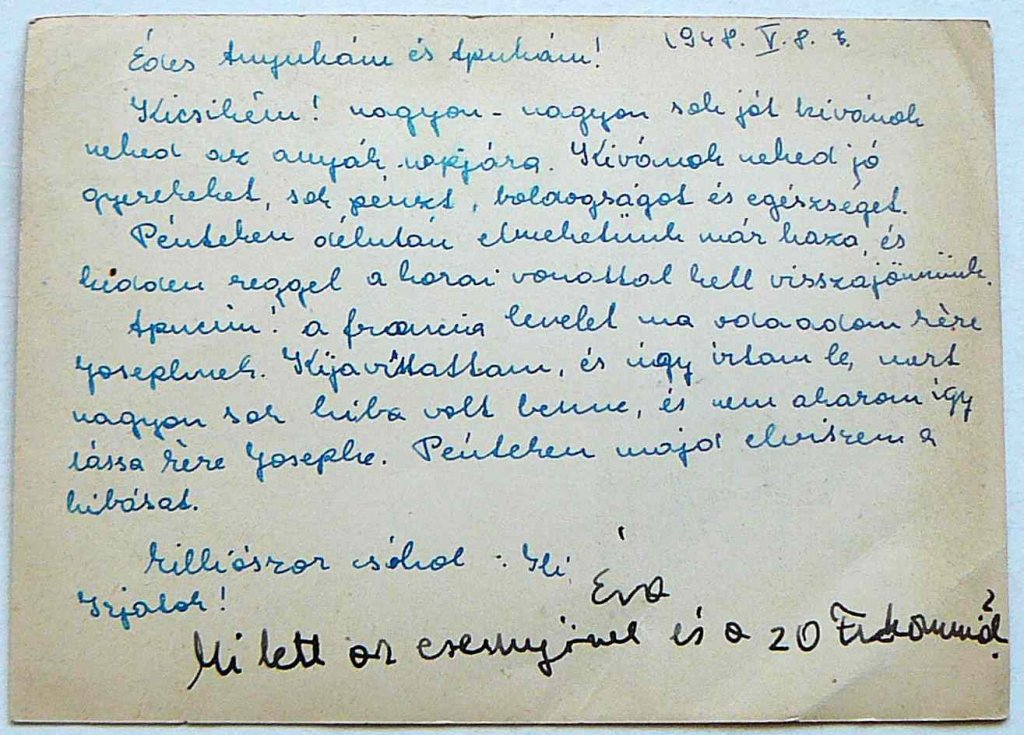 1948. V. 8. t.
Édes Anyukám és Apukám!
Kicsikém! nagyon - nagyon sok jót kívánok
neked az anyák napjára. Kívánok neked jó
gyerekeket, sok pénzt, boldogságot és egészséget.
Pénteken délután elmehetünk már haza, és
kedden reggel a korai vonattal kell visszajönnünk.
Apucim! a francia levelet ma odaadom Père
Josephnek. Kijavíttattam, és úgy írtam le, mert
nagyon sok hiba volt benne, és nem akarom így
lássa Père Josephe. Pénteken majd elviszem a
hibásat.
Milliószor csókol : Ili
Éva
Írjatok!
Mi lett az csesznyőnel és a 20